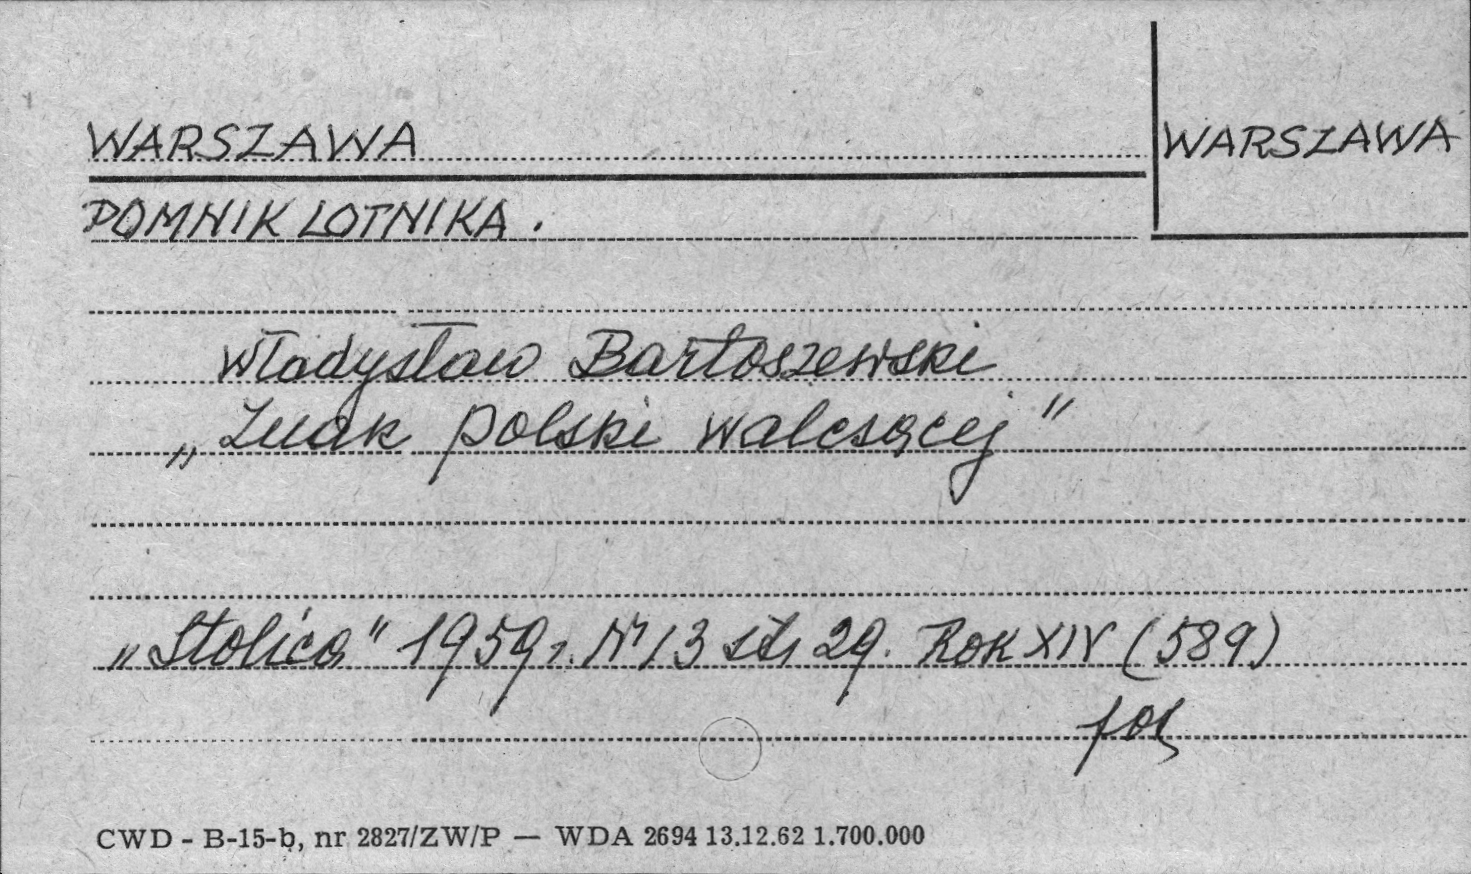 WARSZAWA
WARSZAWA
POMNIK LOTNIKA.
Władysław Bartoszewski
„Znak polski walczącej"
„Stolica" 1959 r. Nr 13 str 29. Rok XIV (589)
CWD - B-15-b, nr 2827/ZW/P — WDA 2694 13.12.62 1.700.000